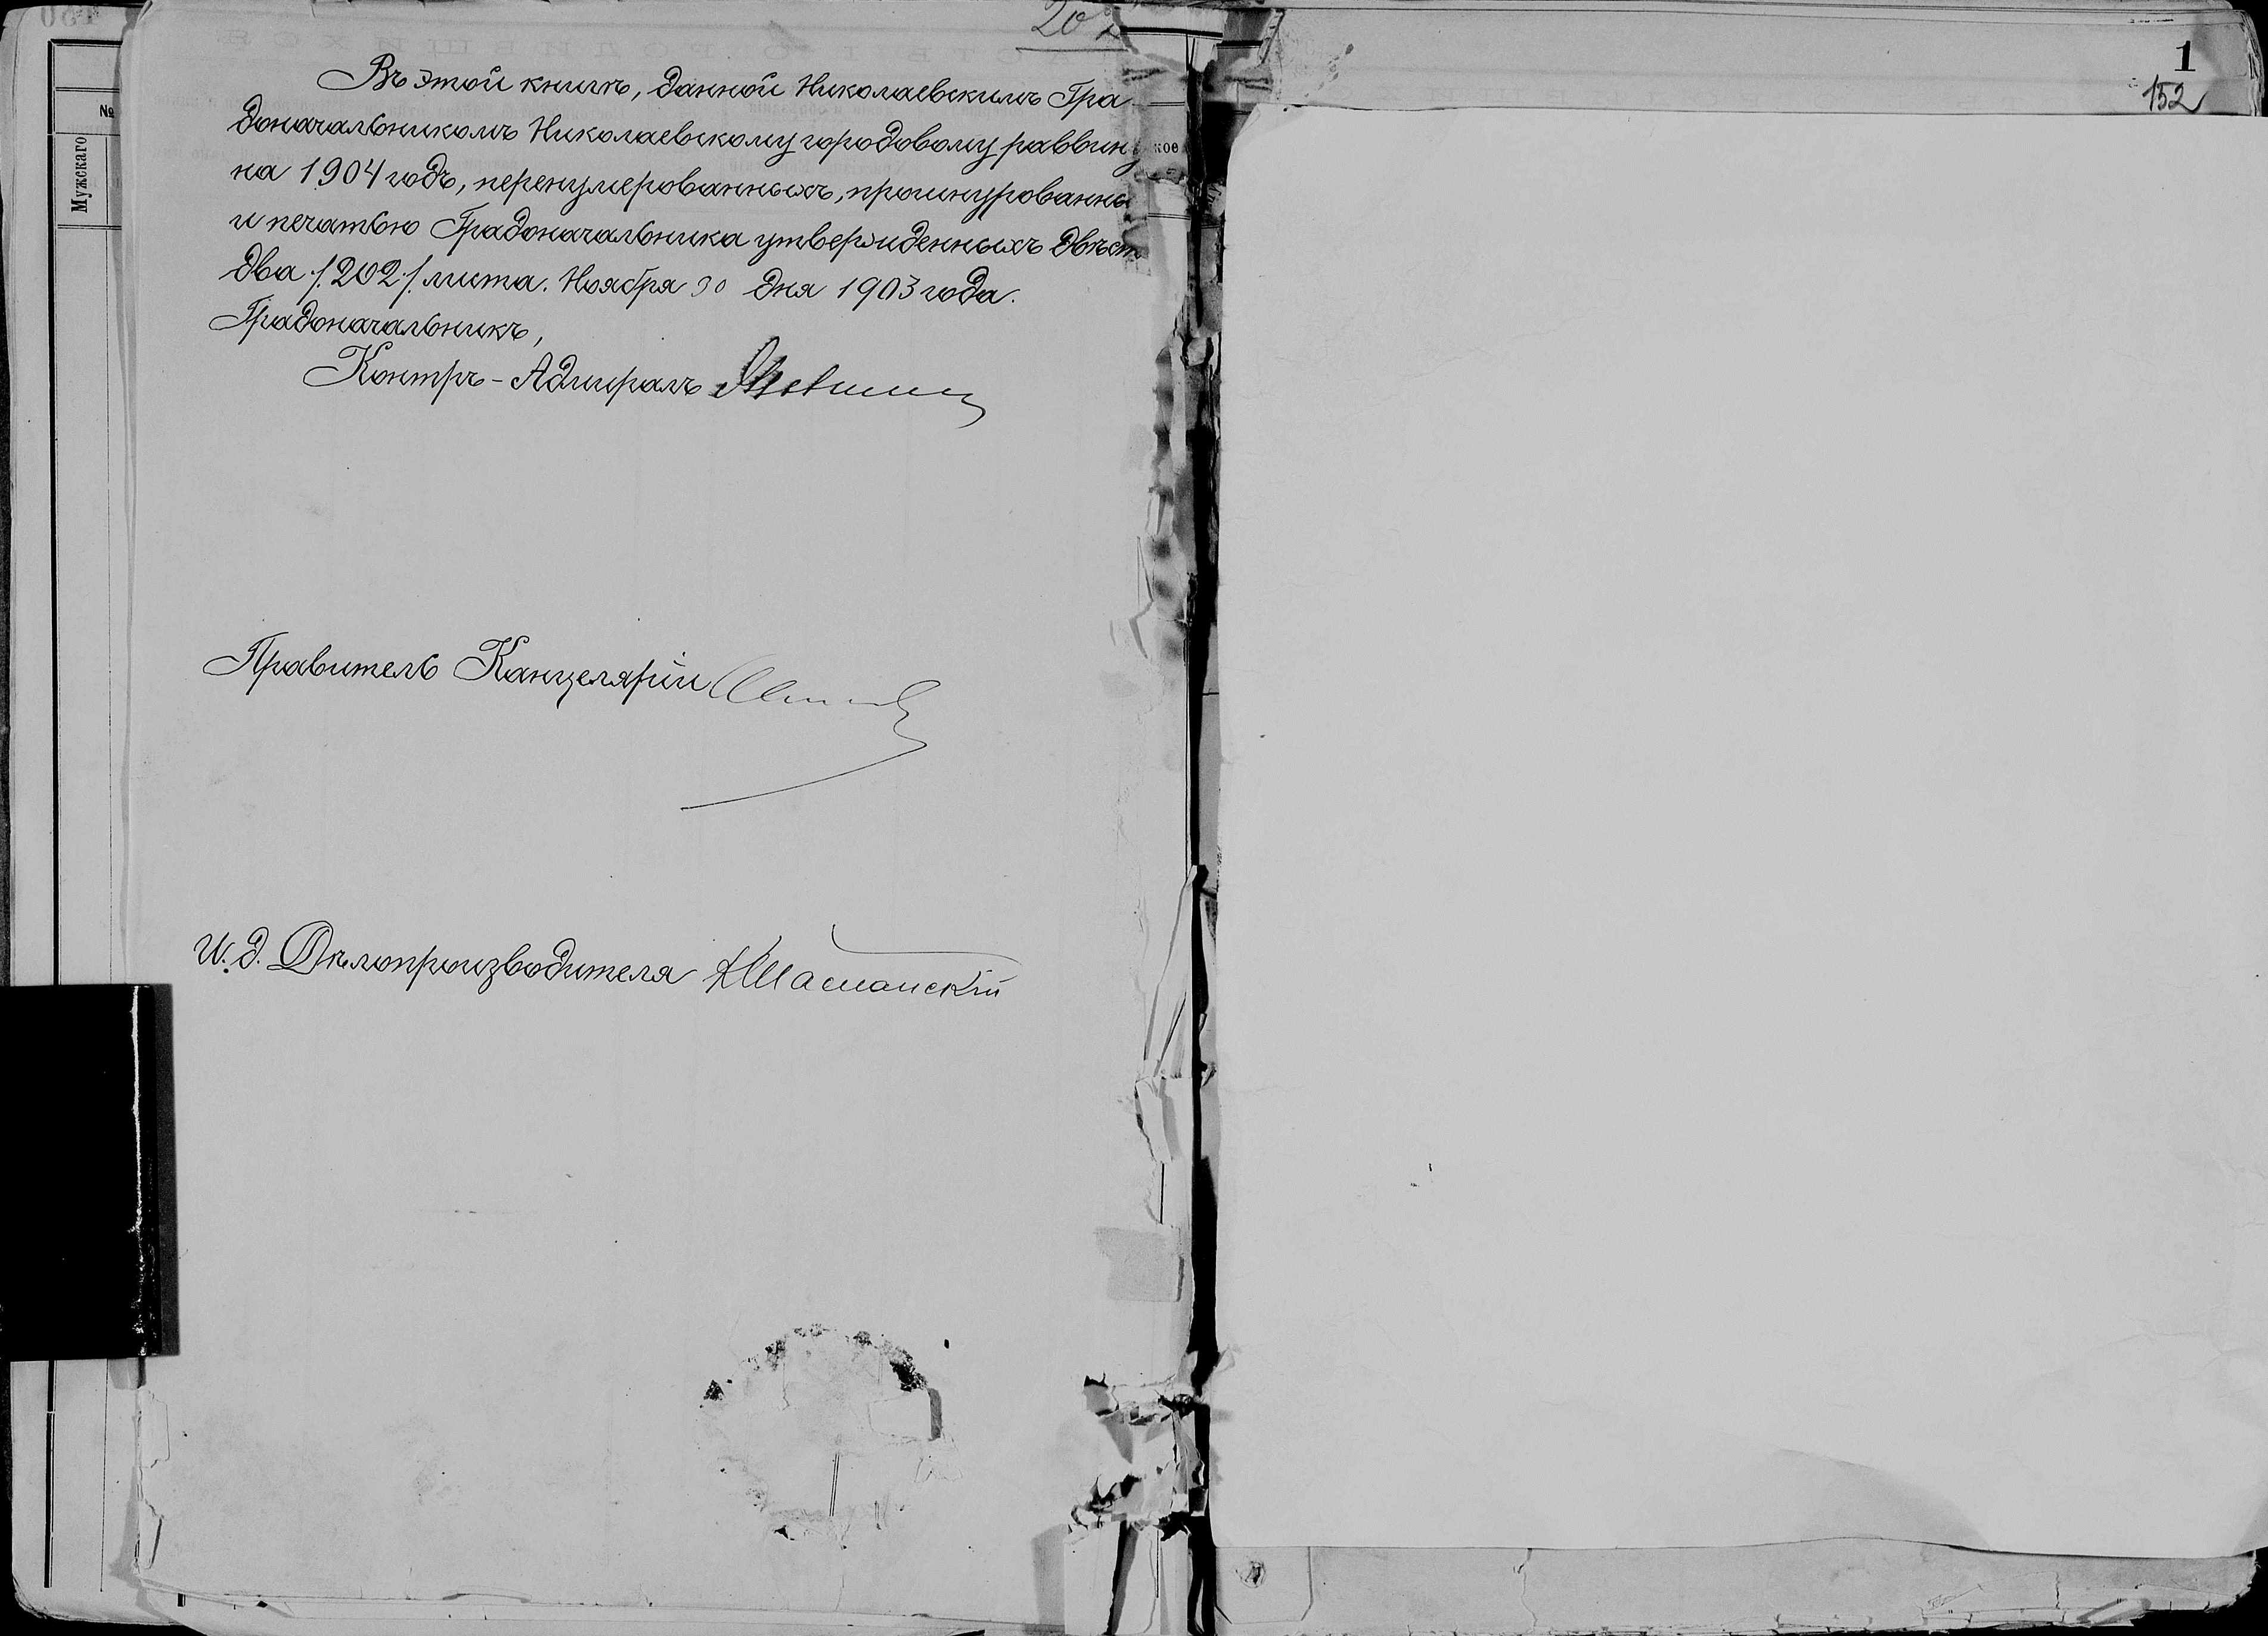 202
Въ этой книгѣ, данной Николаевскимъ Гра-
доначальникомъ Николаевскому городовому раввину
на 1904 годъ, перенумерованныхъ, прошнурованны
и печатью Градоначальника утвержденныхъ двѣст
два /.202./ листа. Ноября 30 дня 1903 года.
Градоначальникъ,
Контръ-Адмиралъ
Правитель Канцеляріи
И. д. Дѣлопроизводителя
№
Мужскаго
кое
1
152